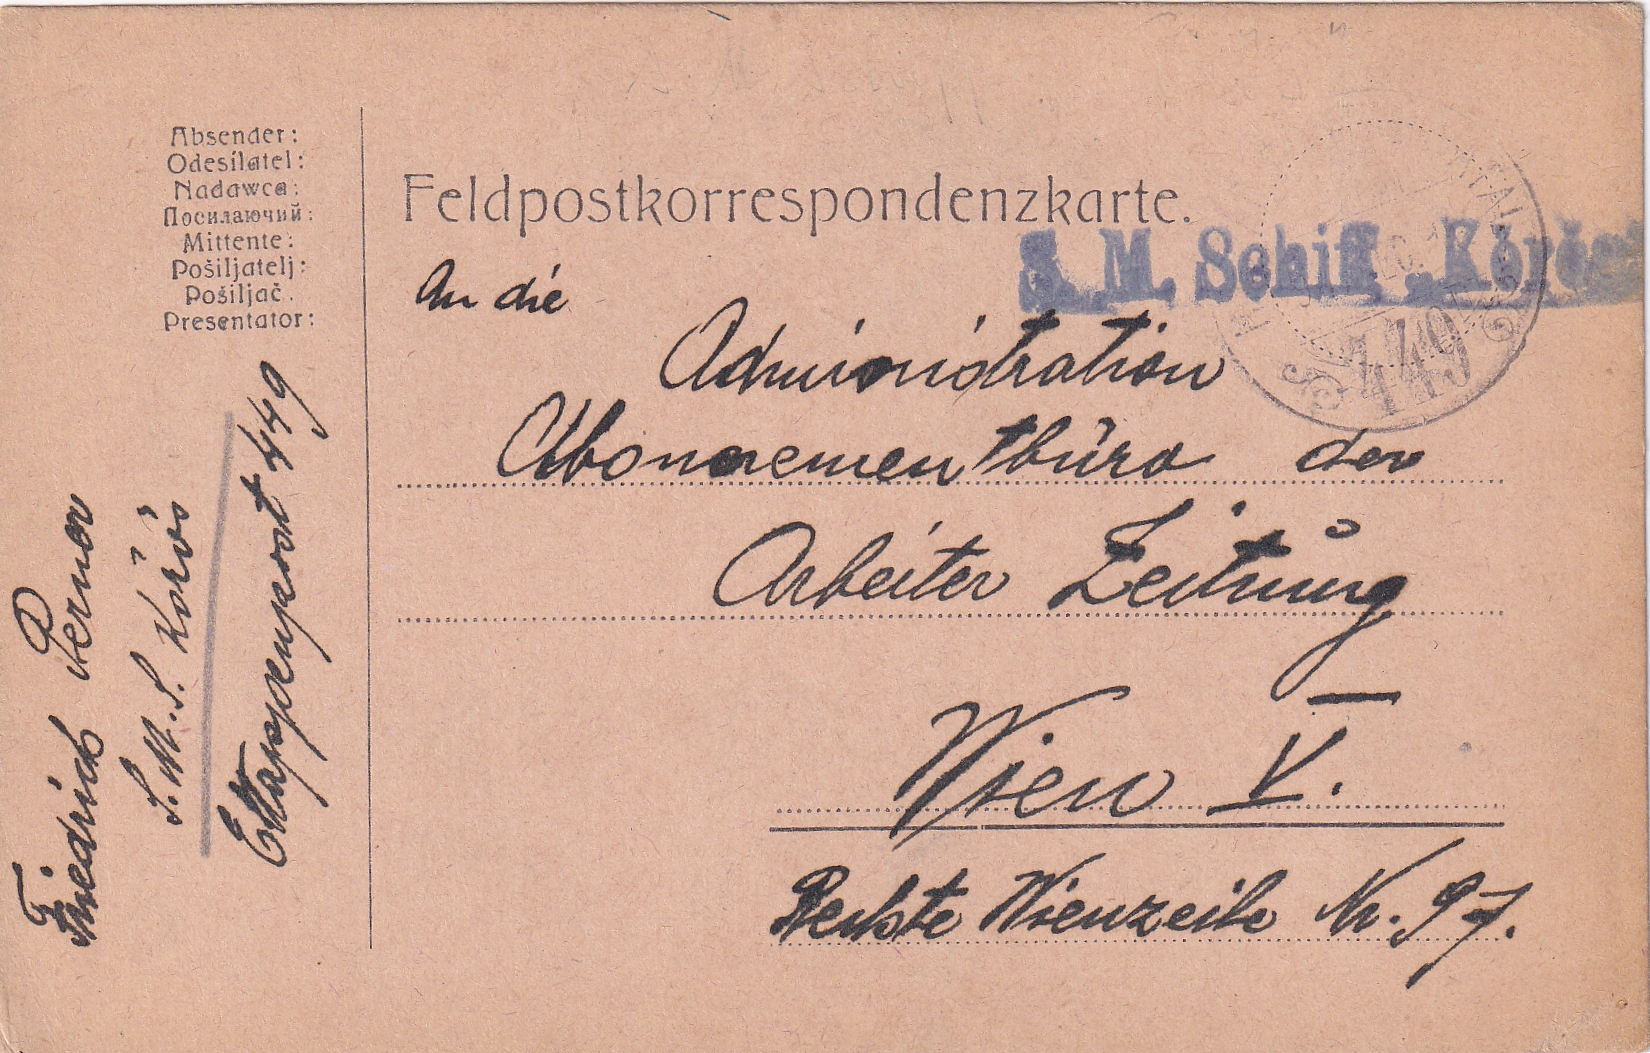 Absender:
Odesílatel:
Nadawca:
Посилаючий:
Mittente:
Pošiljatelj:
Pošiljač.
Presentator:
Friedrich Perner
S. M. S. Körös
Ettappenpost 449
Feldpostkorrespondenzkarte.
S. M. Schiff „Körös
449
An die
Administration
Abonnementbüro der
Arbeiter Zeitung
Wien V.
Rechte Wienzeile Nr. 97.